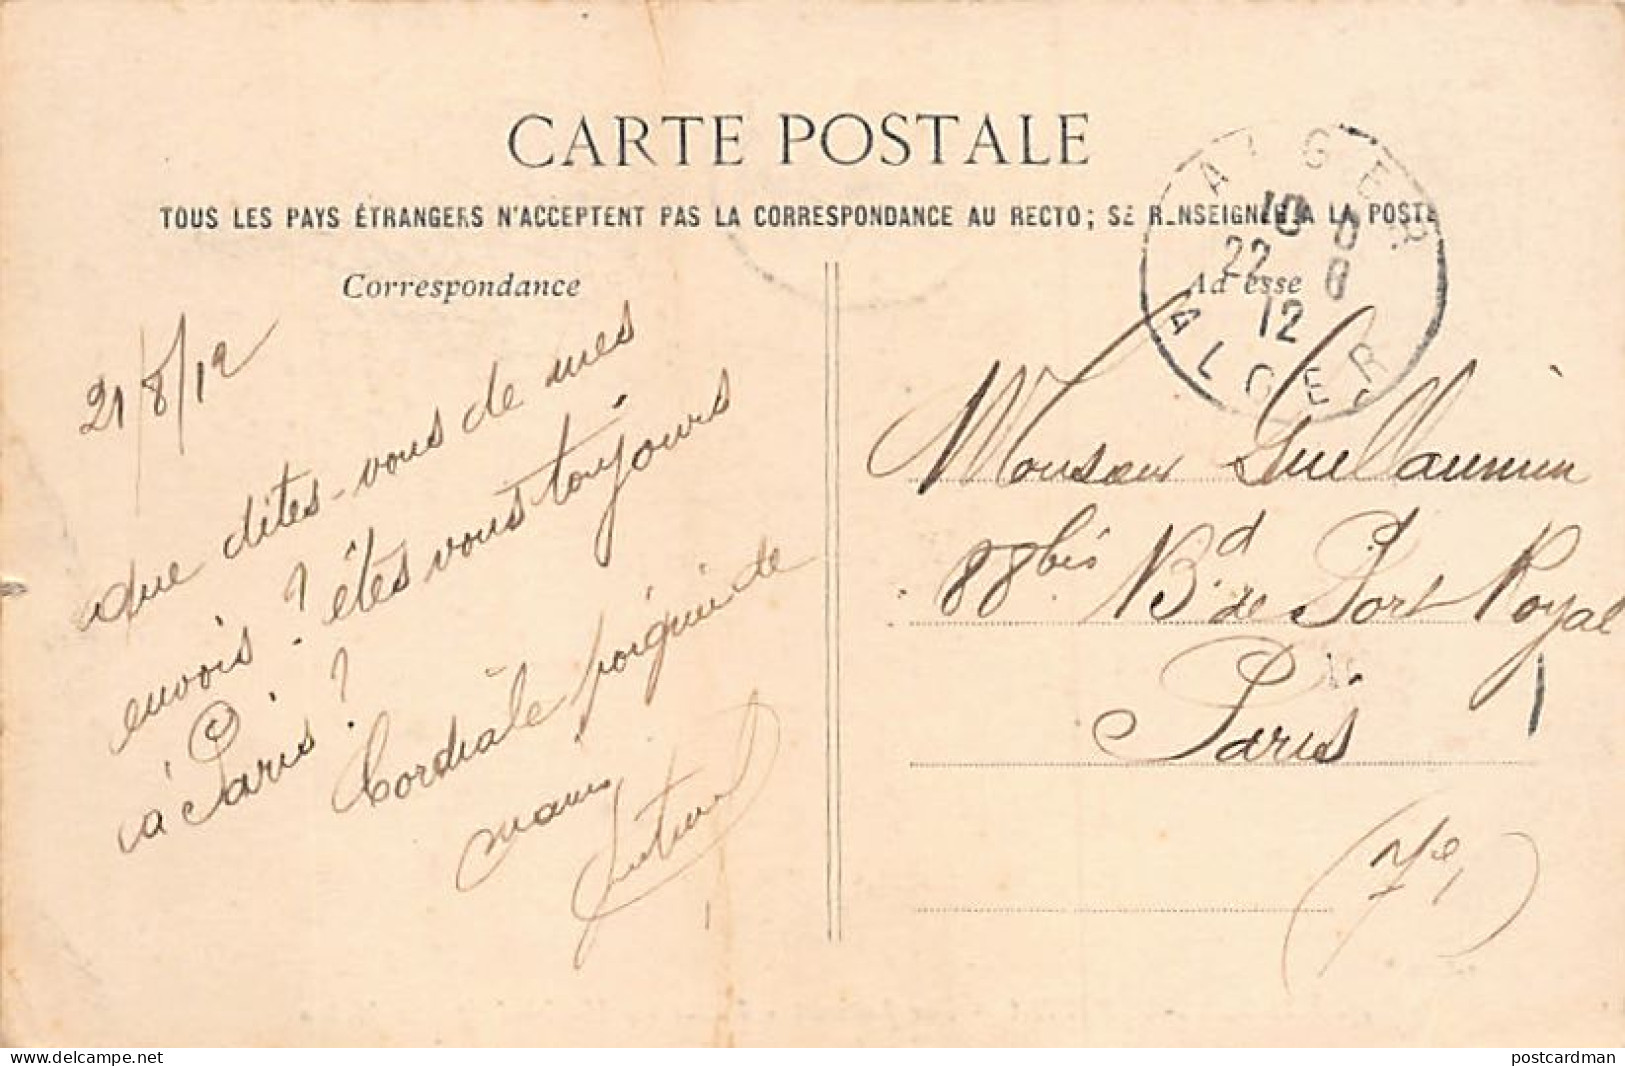 CARTE POSTALE
TOUS LES PAYS ÉTRANGERS N'ACCEPTENT PAS LA CORRESPONDANCE AU RECTO; SE RENSEIGNER A LA POSTE
Correspondance
21/8/12
que dites-vous de mes
envois? êtes vous toujours
à Paris?
Cordiale poignée de
mains
Adresse
ALGER
10
22 8
12
ALGER
Monsieur Guillaumin
88bis Bd de Port Royal
Paris
www.delcampe.net
postcardman